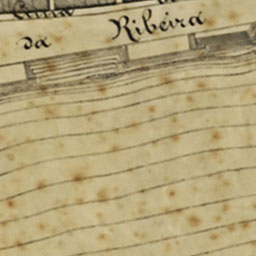 da Ribeira